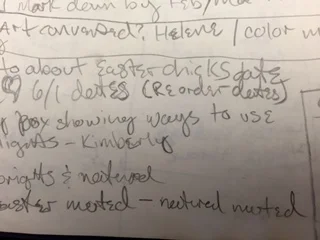 mark down by Feb/Mar
Art converted? Helene / color m
to about Easter chicks date
6/1 dates (Reorder dates)
box showing ways to use
lights - Kimberly
brights & natural
muted - natural muted